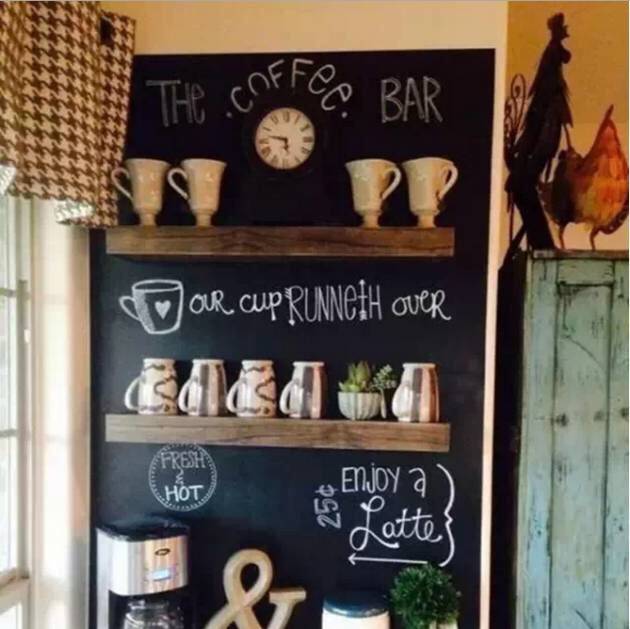 THE COFFEE BAR
OUR CUP RUNNETH OVER
FRESH
&
HOT
25¢
ENJOY A
Latte
&